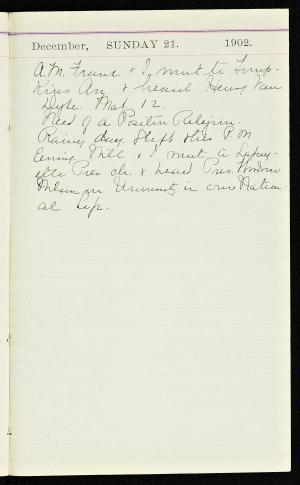 December, SUNDAY 21. 1902.
A.M. Frank & I went to Tomp-
kins Av. & heard Henry Van
Dyke. Mat 12.
Need of a Positive Religion.
Rainy day. Slept this P.M.
Evening Will & I went to Lafay-
ette Pres. ch. & heard Pres. Woodrow
Wilson on University in our Nation-
al Life.